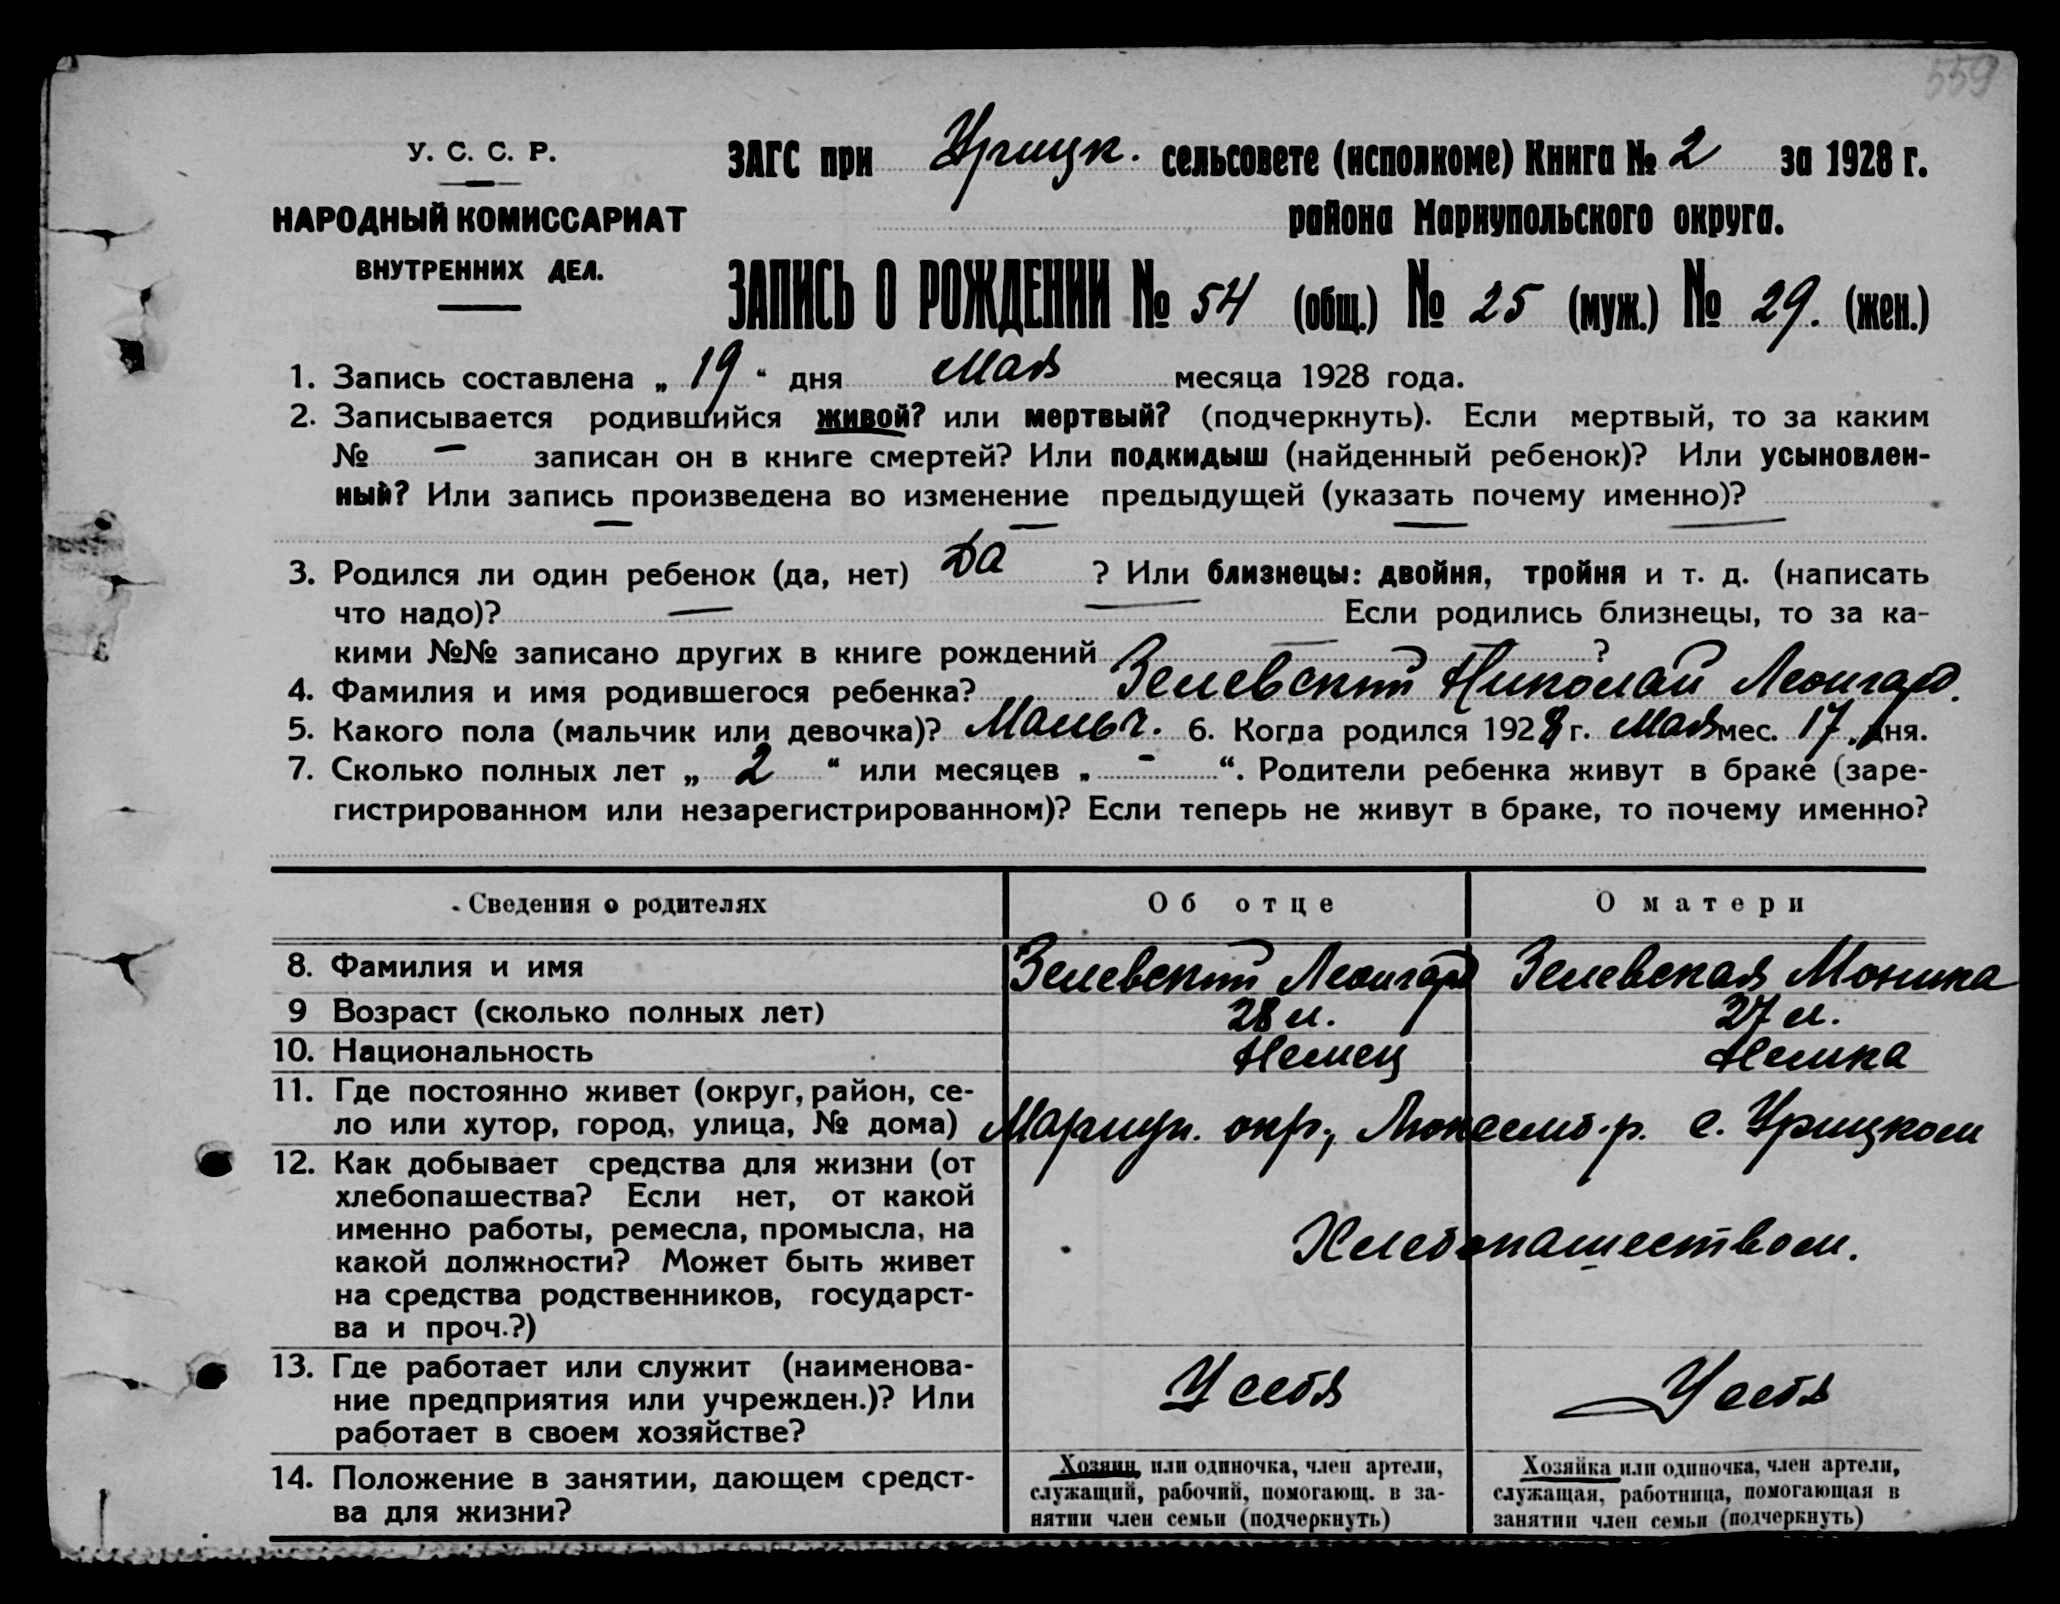 559
У. С. С. Р.
НАРОДНЫЙ КОМИССАРИАТ
ВНУТРЕННИХ ДЕЛ.
ЗАГС при Урицк. сельсовете (исполкоме) Книга № 2 за 1928 г.
района Мариупольского округа.
ЗАПИСЬ О РОЖДЕНИИ № 54 (общ.) № 25 (муж.) № 29. (жен.)
1. Запись составлена „ 19 “ дня Мая месяца 1928 года.
2. Записывается родившийся живой? или мертвый? (подчеркнуть). Если мертвый, то за каким
№ — записан он в книге смертей? Или подкидыш (найденный ребенок)? Или усыновлен-
ный? Или запись произведена во изменение предыдущей (указать почему именно)?
— — — —
3. Родился ли один ребенок (да, нет) Да ? Или близнецы: двойня, тройня и т. д. (написать
что надо)? — — Если родились близнецы, то за ка-
кими №№ записано других в книге рождений — — ?
4. Фамилия и имя родившегося ребенка? Зелевский Николай Леонгард.
5. Какого пола (мальчик или девочка)? Мальч. 6. Когда родился 1928 г. Мая мес. 17 дня.
7. Сколько полных лет „ 2 “ или месяцев „ - “. Родители ребенка живут в браке (заре-
гистрированном или незарегистрированном)? Если теперь не живут в браке, то почему именно?
Сведения о родителях Об отце О матери
8. Фамилия и имя Зелевский Леонгард Зелевская Моника
9 Возраст (сколько полных лет) 28 л. 27 л.
10. Национальность Немец Немка
11. Где постоянно живет (округ, район, се-
ло или хутор, город, улица, № дома) Мариуп. окр., Люксемб. р. с. Урицком
12. Как добывает средства для жизни (от
хлебопашества? Если нет, от какой
именно работы, ремесла, промысла, на
какой должности? Может быть живет
на средства родственников, государст-
ва и проч.?)
Хлебопашеством.
13. Где работает или служит (наименова-
ние предприятия или учрежден.)? Или
работает в своем хозяйстве?
У себя У себя
14. Положение в занятии, дающем средст-
ва для жизни?
Хозяин, или одиночка, член артели,
служащий, рабочий, помогающ. в за-
нятии член семьи (подчеркнуть)
Хозяйка или одиночка, член артели,
служащая, работница, помогающая в
занятии член семьи (подчеркнуть)